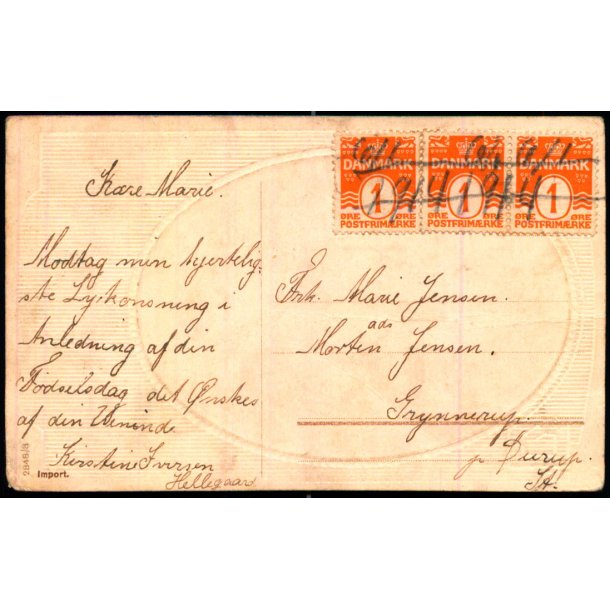 Kære Marie.
Modtag min hjertelig-
ste Lykønsning i
Anledning af din
Fødselsdag det Ønskes
af din Veninde
Kirstine Iversen
Hellegaard
2848/8
Import.
DANMARK DANMARK DANMARK
1 1 1
ØRE ØRE ØRE ØRE ØRE ØRE
POSTFRIMÆRKE POSTFRIMÆRKE POSTFRIMÆRKE
Frk. Marie Jensen.
ads
Morten Jensen.
Grynnerup.
p Durup.
St.